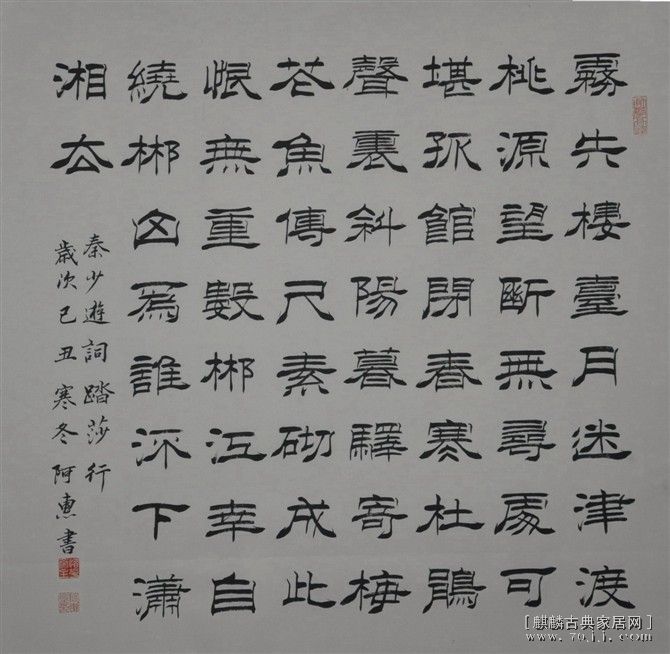 霧失樓臺月迷津渡
桃源望斷無尋處可
堪孤館閉春寒杜鵑
聲裏斜陽暮驛寄梅
花魚傳尺素砌成此
恨無重數郴江幸自
繞郴山爲誰流下瀟
湘去
秦少遊詞踏莎行
歲次己丑寒冬阿惠書
[麒麟古典家居网]
www.70jj.com